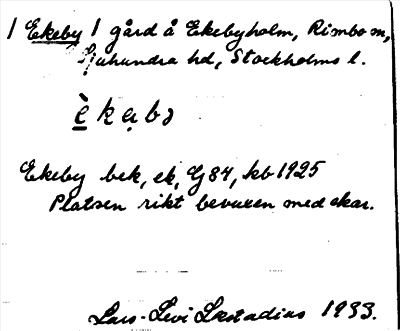 1 Ekeby 1 gård å Ekebyholm, Rimbo sn,
Sjuhundra hd, Stockholms l.
è k ạ b ə
Ekeby bek, ek, G 84, kb 1925
Platsen rikt bevuxen med ekar.
Lars-Levi Læstadius 1933.